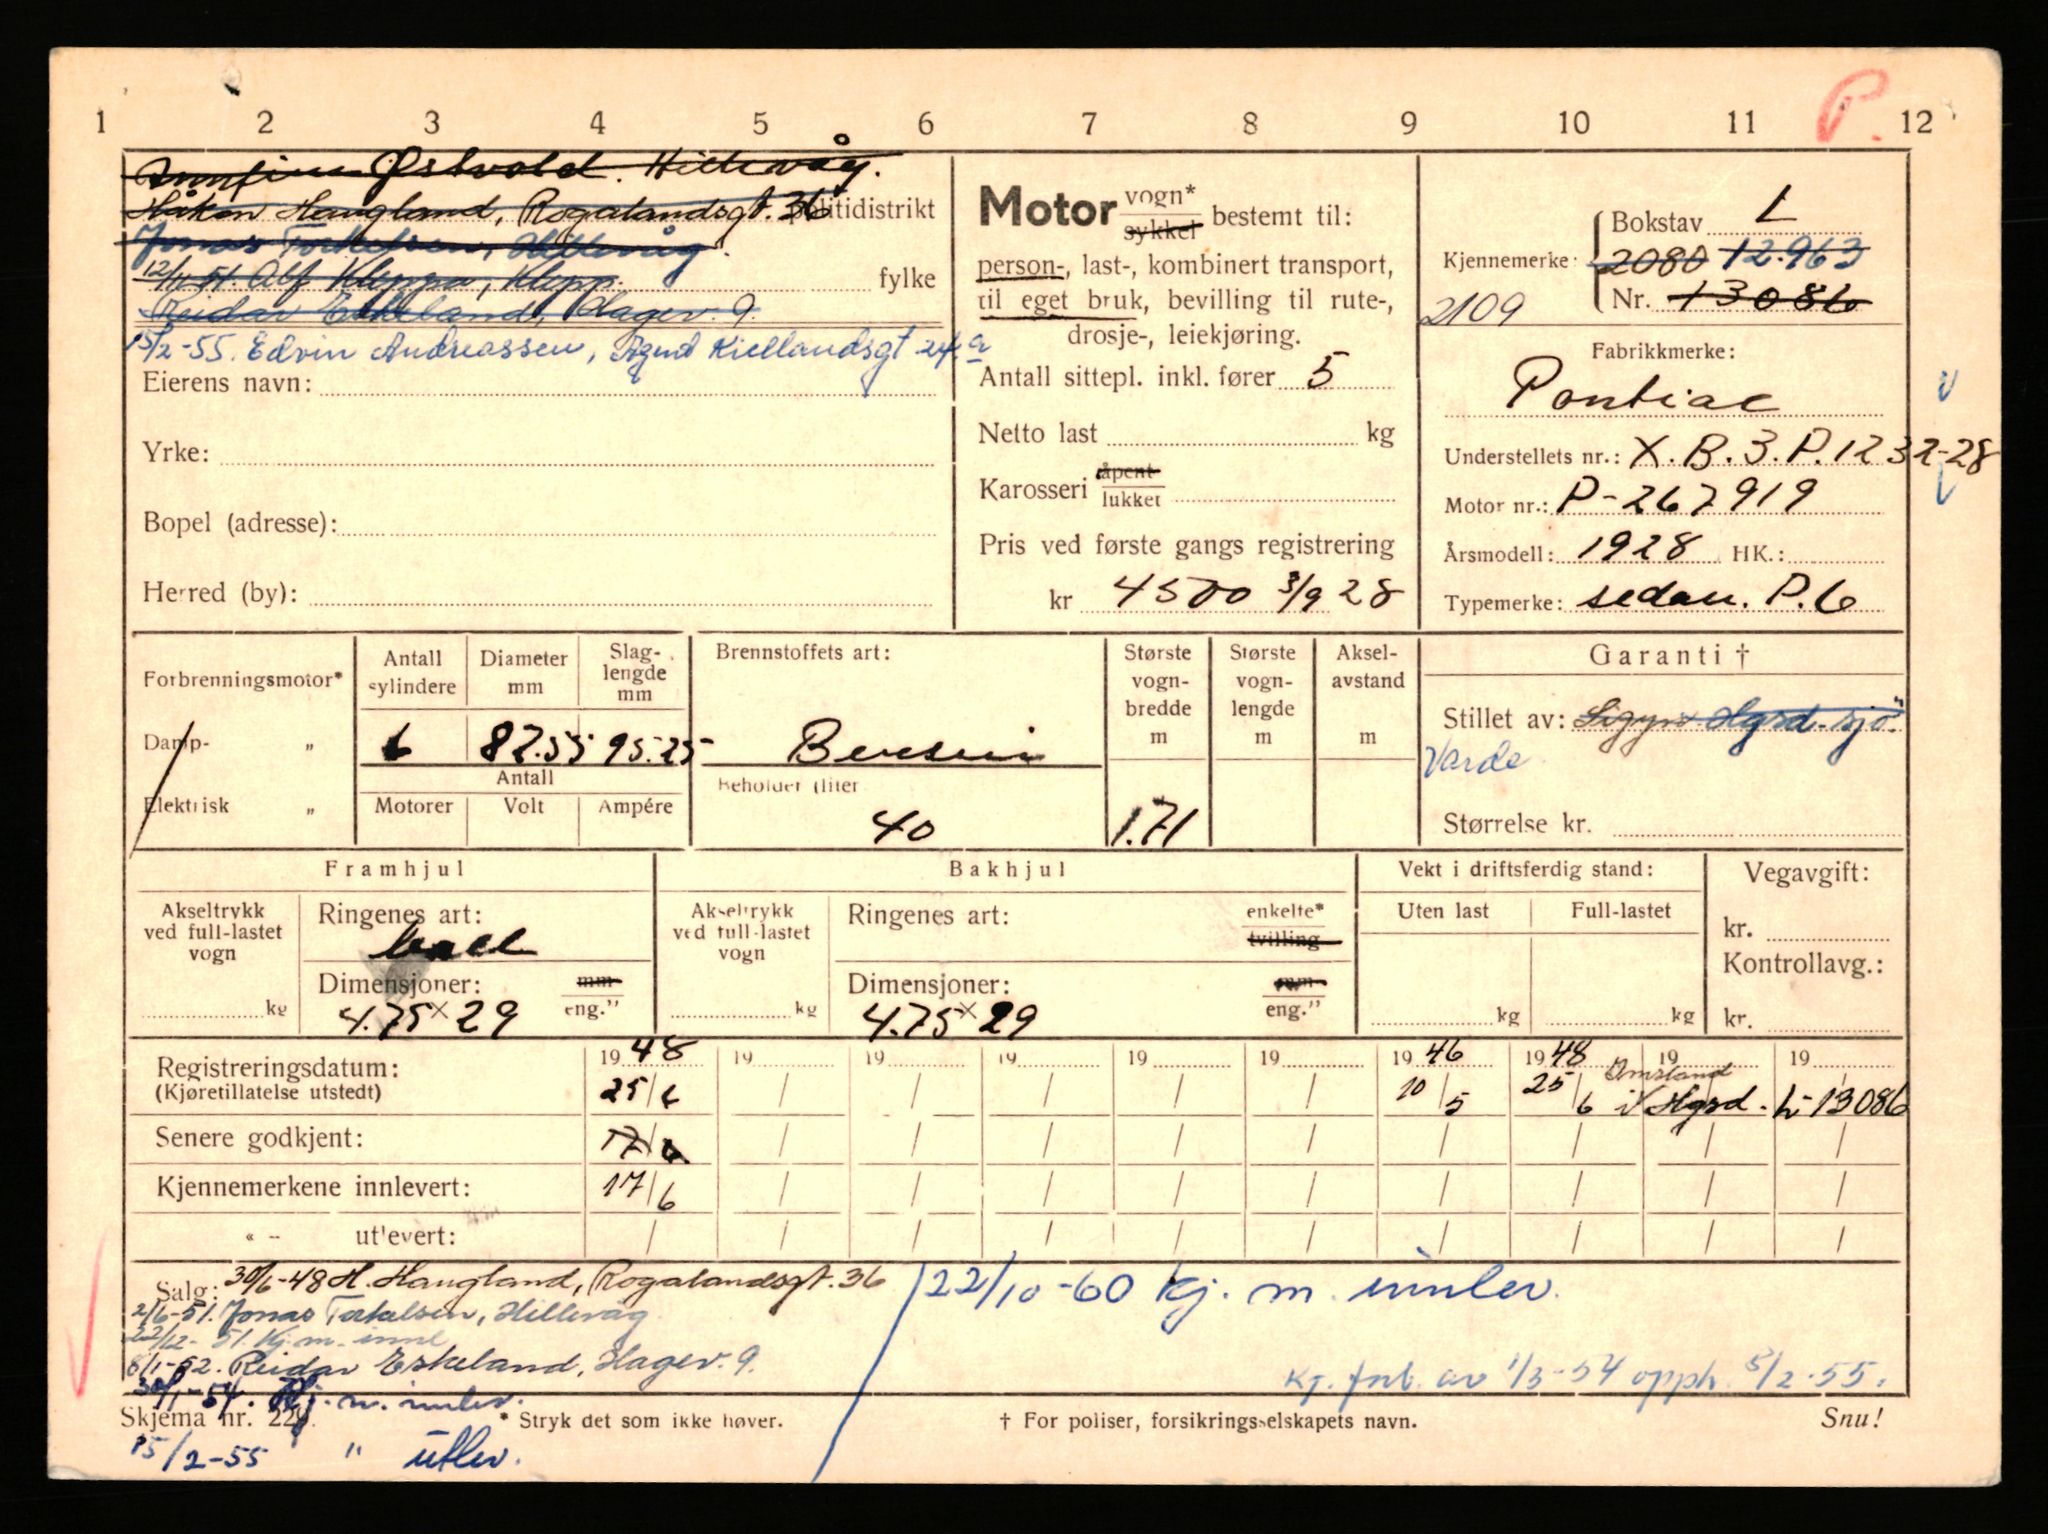 P.
1 2 3 4 5 6 7 8 9 10 11 12
Østvold. Hillevåg.
Håkon Haugland, Rogalandsgt. 36 politidistrikt
Jonas Torkelsen, Hillevåg.
12/11 51. Alf Kleppa, Klepp. fylke
Reidar Eskeland, Hagev. 9.
15/2-55. Edvin Andreassen, Agnd Kiellandsgt 24 a
Eierens navn:
Yrke:
Bopel (adresse):
Herred (by):
Motor vogn* sykkel bestemt til:
person-, last-, kombinert transport,
til eget bruk, bevilling til rute-,
drosje-, leiekjøring.
Antall sittepl. inkl. fører 5
Netto last kg
Karosseri åpent lukket
Pris ved første gangs registrering
kr 4500 3/9 28
Bokstav L
Kjennemerke: 2080 12.963
2109 Nr. 13086
Fabrikkmerke:
Pontiac
Understellets nr.: X.B.3.P.1232-28
Motor nr.: P-267919
Årsmodell: 1928 HK.:
Typemerke: sedan. P.6
Forbrenningsmotor*
Damp- „
Elektrisk „
Antall sylindere Diameter mm Slaglengde mm
6 82.55 95.25
Antall
Motorer Volt Ampére
Brennstoffets art:
Bensin
Beholder (liter
40
Største vogn-bredde m
1.71
Største vogn-lengde m
Aksel-avstand m
Garanti †
Stillet av: Sigyn Hgsd-sjö.
Varde
Størrelse kr.
Framhjul
Akseltrykk ved full-lastet vogn
kg
Ringenes art:
Dimensjoner: mm
4.75 x 29 eng."
Bakhjul
Akseltrykk ved full-lastet vogn
kg
Ringenes art: enkelte* tvilling
Dimensjoner: mm
4.75 x 29 eng."
Vekt i driftsferdig stand:
Uten last Full-lastet
kg kg
Vegavgift:
kr.
Kontrollavg.:
kr.
Registreringsdatum: 19 48 19 19 19 19 19 19 46 19 48 19 19
(Kjøretillatelse utstedt) 25/6 / / / / / 10/5 25/6 Omsland i Hgsd. L-13086
Senere godkjent: 17/6 / / / / / / / / /
Kjennemerkene innlevert: 17/6 / / / / / / / / /
« - utlevert: / / / / / / / / / /
Salg: 30/6-48 H. Haugland, Rogalandsgt. 36
2/6-51. Jonas Torkelsen, Hillevåg
22/12-51. Kj. m. innl
8/1-52. Reidar Eskeland, Hagev. 9.
30/1-54. Kj. m. innlev.
15/2-55 " utlev.
22/10-60 Kj. m. innlev.
Kj. forb. av 1/3-54 opph. 5/2-55.
Skjema nr. 229. * Stryk det som ikke høver. † For poliser, forsikringsselskapets navn. Snu!